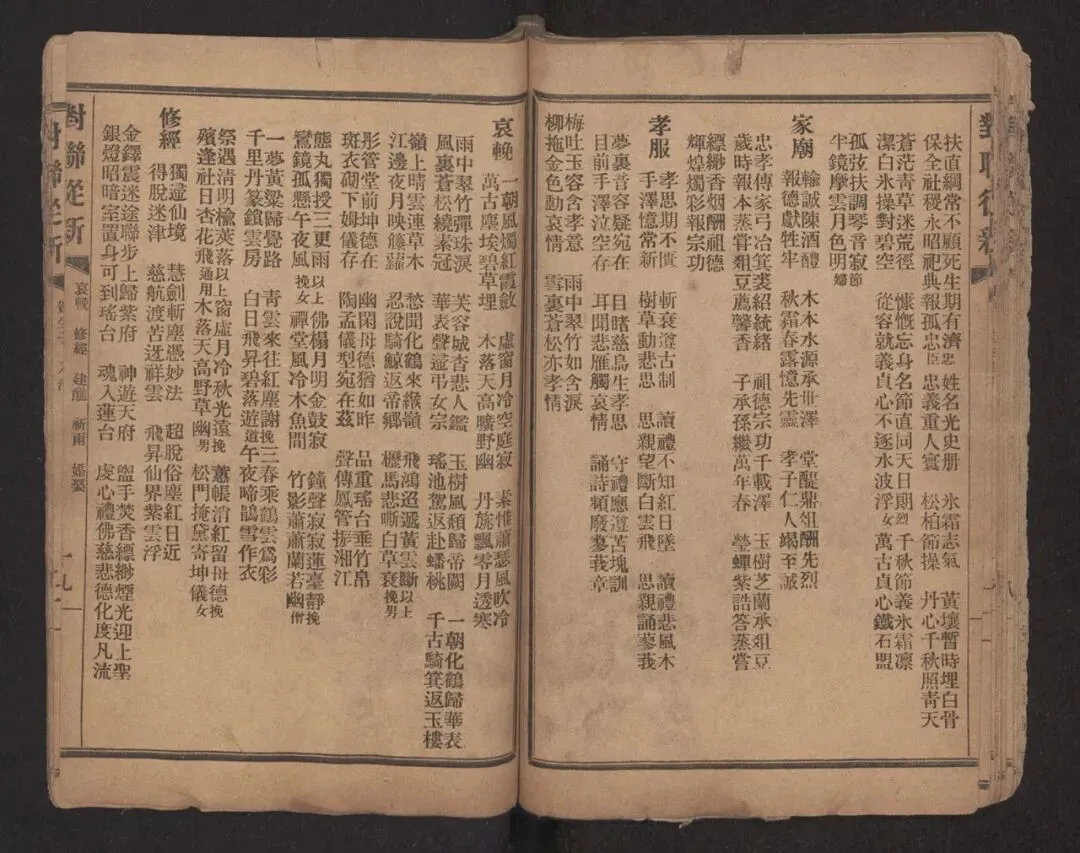 對聯從新
扶直綱常不顧死生期有濟忠 姓名光史册 氷霜志氣 黃壤暫時埋白骨
保全社稷永昭祀典報孤忠臣 忠義重人寰 松柏節操 丹心千秋照靑天
蒼茫靑草迷荒徑 慷慨忘身名節直同天日則烈 千秋節義氷霜凛
潔白氷操對碧空 從容就義貞心不逐水波浮女 萬古貞心鐵石盟
孤弦扶調琴音寂節
半鏡摩雲月色明婦
家廟 輸誠陳酒醴 木本水源承世澤 堂醍鼎俎酬先烈
報德獻牲牢 秋霜春露憶先靈 孝子仁人竭至誠
忠孝傳家弓冶箕裘紹統緒 祖德宗功千載澤 玉樹芝蘭承俎豆
歲時報本蒸嘗俎豆薦馨香 子承孫繼萬年春 瑩蟬紫誥答蒸嘗
縹緲香烟酬祖德
輝煌燭彩報宗功
孝服 孝思期不匱 斬衰遵古制 讀禮不知紅日墜 讀禮悲風木
手澤憶常新 樹草動悲思 思親望斷白雲飛 思親誦蓼莪
夢裏音容疑宛在 目睹慈烏生孝思 守禮應遵苫塊訓
目前手澤泣空存 耳聞悲雁觸哀情 誦詩頻廢蓼莪章
梅吐玉容含孝意 雨中翠竹如含淚
柳拖金色動哀情 雪裏蒼松亦孝情
哀輓 一朝風燭紅霞斂 虛窗月冷空庭寂 素惟蕭瑟風吹冷
萬古塵埃碧草埋 木落天高曠野幽 丹旐飄零月透寒
雨中翠竹彈珠淚 芙容城杳悲人鑑 玉樹風頹歸帝闕 一朝化鶴歸華表
風裏蒼松繞素冠 華表聲遊弔女宗 瑤池駕返赴蟠桃 千古騎箕返玉樓
嶺上晴雲連草木 愁聞化鶴來緱嶺 飛鴻迢遞黃雲斷以上
江邊夜月映籐蘿 忍說騎鯨返帝鄉 櫪馬悲嘶白草衰挽男
彤管堂前坤德在 幽閑母德猶如昨 品重瑤台垂竹帛
斑衣砌下姆儀存 陶孟儀型宛在茲 聲傳鳳管振湘江
熊丸獨授三更雨以上 佛榻月明金鼓寂 鐘聲寂寂蓮臺靜挽
鸞鏡孤懸午夜風挽女 禪堂風冷木魚間 竹影蕭蕭蘭若幽僧
一夢黃粱歸覺路 靑雲來往紅塵謝挽 三春乘鶴雲爲彩
千里丹篆鎖雲房 白日飛昇碧落遊道 午夜啼鵑雪作衣
祭遇淸明楡莢落以上 窗虛月冷秋光遠挽 蕙帳消紅留母德挽
殯逢社日杏花飛通用 木落天高野草幽男 松門掩黛寄坤儀女
修經 獨遊仙境 慧劍斬塵憑妙法 超脫俗塵紅日近
得脫迷津 慈航渡苦迓祥雲 飛昇仙界紫雲浮
金鐸震迷途聯步上歸紫府 神遊天府 盥手焚香縹緲煙光迎上聖
銀燈昭暗室置身可到瑤台 魂入蓮台 虔心禮佛慈悲德化度凡流
對聯從新
哀輓 修經 建醮 祈雨 婚娶